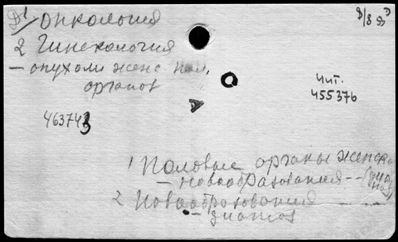 1 Онкология
2 Гинекология
– опухоли женс. пол.
органов
Чит.
455376
463743
1 Половые органы женск.
– новообразования --
2 Новообразования